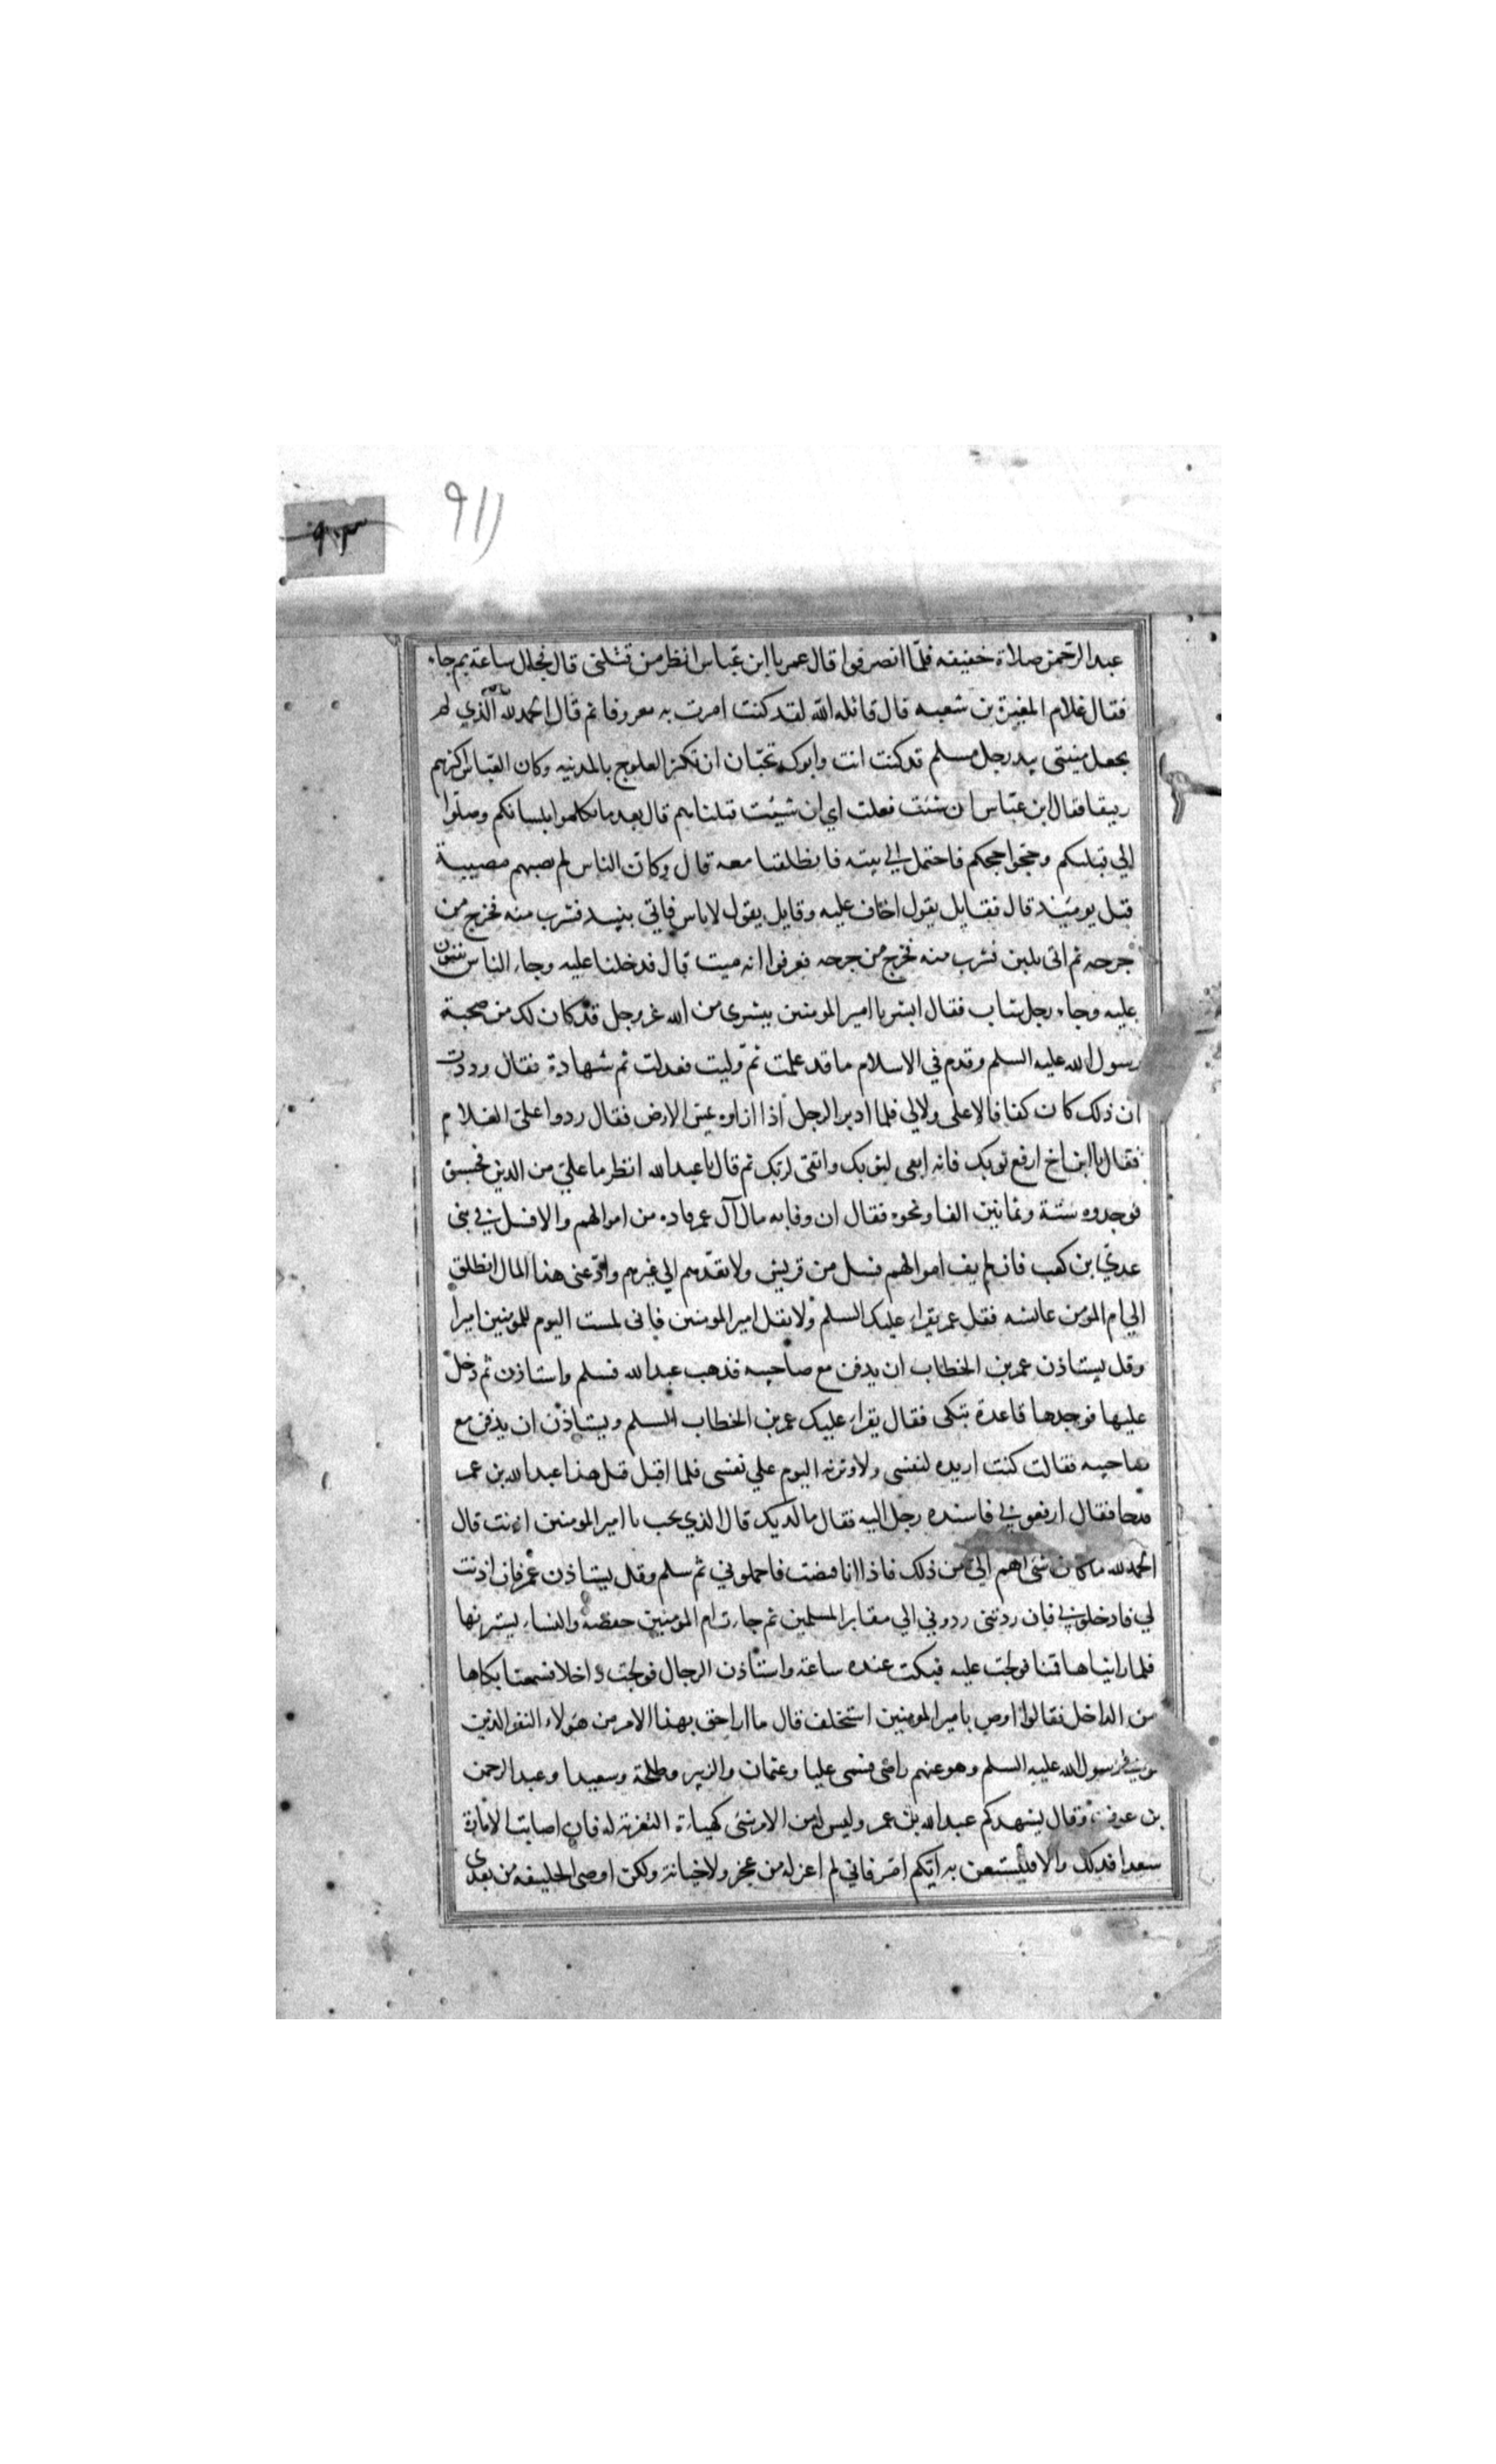 ٩١١
٩٠٣
عبد الرحمن صلاة خفيفه فلمّا انصرفوا قال عمر يا ابن عبّاس انظر من قتلنى قال فجال ساعة ثم جاء
فقال غلام المغيرة بن شعبه قال قاتله الله لقد كنت امرت به معروفا ثم قال الحمد لله الّذي لم
يجعل منيتى بيد رجل مسلم قد كنت انت وابوك تحبّان ان تكثر العلوج بالمدينه وكان العبّاس اكثرهم
رقيقا فقال ابن عبّاس ان شئت فعلت اي ان شيئت قتلناهم قال بعد ما تكلموا بلسانكم وصلّوا
الي قبلتكم وحجّوا حجكم فاحتمل الي بيته فانطلقنا معه قال وكان الناس لم تصبهم مصيبة
قبل يومئيذ قال فقايل يقول اخاف عليه وقايل يقول لا باس فاتي بنبيذ فشرب منه فخرج من
جرحه ثم اتى بلبن فشرب منه فخرج من جرحه فعرفوا انه ميت قال فدخلنا عليه وجاء الناس يثنون
عليه وجاء رجل شاب فقال ابشر يا امير المومنين ببشرى من الله عز وجل قد كان لك من صحبة
رسول الله عليه السلم وقدم في الاسلام ما قد علمت ثمّ وليت فعدلت ثم شهادة فقال وددت
ان ذلك كان كفافا لا على ولا لي فلما ادبر الرجل اذا ازاره عيتى الارض فقال ردوا علىّ الغلام
فقال يا ابن اخ ارفع ثوبك فانه ابقى لثوبك واتقى لربّك ثم قال يا عبد الله انظر ما علىّ من الدين فحسبوه
فوجدوه ستة وثمانين الفا ونحوه فقال ان وفا به مال آل عمر فاده من اموالهم والا فسل في بنى
عديّ بن كعب فان لم يف اموالهم فسل من قريش ولا تعدّهم الي غيرهم وادّ عنى هذا المال انطلق
الي ام المومن عائشه فقل عمر يقراء عليك السلم ولا تقل امير المومنين فانى لست اليوم للمومنين اميرا
وقل يستاذن عمر بن الخطاب ان يدفن مع صاحبيه فذهب عبد الله فسلم واستاذن ثم دخل
عليها فوجدها قاعدة تبكى فقال يقراء عليك عمر بن الخطاب السلم ويستاذن ان يدفن مع
صاحبيه فقالت كنت اريده لنفسى ولاوثرنه اليوم علي نفسى فلما اقبل قيل هذا عبد الله بن عمر
فقال ارفعوني فاسنده رجل اليه فقال ما لديك قال الذي تحب يا امير المومنين اذنت قال
الحمد لله ما كان شئ اهم اليّ من ذلك فاذا انا قضت فاحملوني ثم سلم وقل يستاذن عمر فان اذنت
لي فادخلوني فان ردتنى ردوني الي مقابر المسلمين ثم جاءت ام المومنين حفصه والنساء يسترنها
فلما رايناها قمنا فولجت عليه فبكت عنده ساعة واستاذن الرجال فولجت داخلا فسمعنا بكاها
من الداخل فقالوا اوص يا امير المومنين استخلف قال ما ارا احق بهذا الامر من هولاء النفر الذين
رسول الله عليه السلم وهو عنهم راضى فسمى عليا وعثمان والزبير وطلحة وسعيدا وعبد الرحمن
بن عوف وقال يشهدكم عبد الله بن عمر وليس له من الامر شئ كهياة التعزية له فان اصابت الامارة
سعدا فذلك والا فليستعن به ايّكم امّر فاني لم اعزله من عجز ولا خيانة ولكن اوصى الخليفه من بعدى